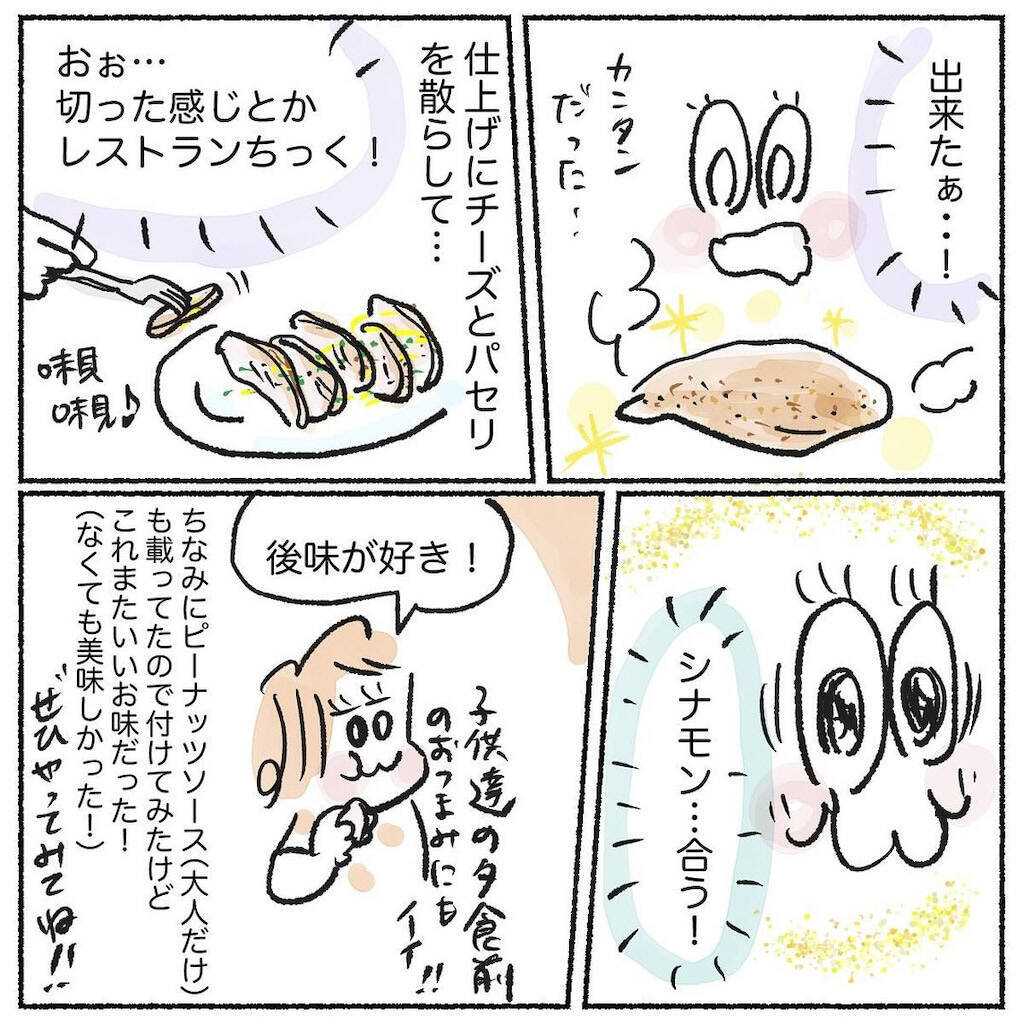 出来たぁ…！
カンタン
だった…
仕上げにチーズとパセリ
を散らして…
おぉ…
切った感じとか
レストランちっく！
味見
味見♪
シナモン…合う！
後味が好き！
子供達の夕食前
のおつまみにも
イイ!!
ちなみにピーナッツソース(大人だけ)
も載ってたので付けてみたけど
これまたいいお味だった！
(なくても美味しかった！)
ぜひやってみてね!!